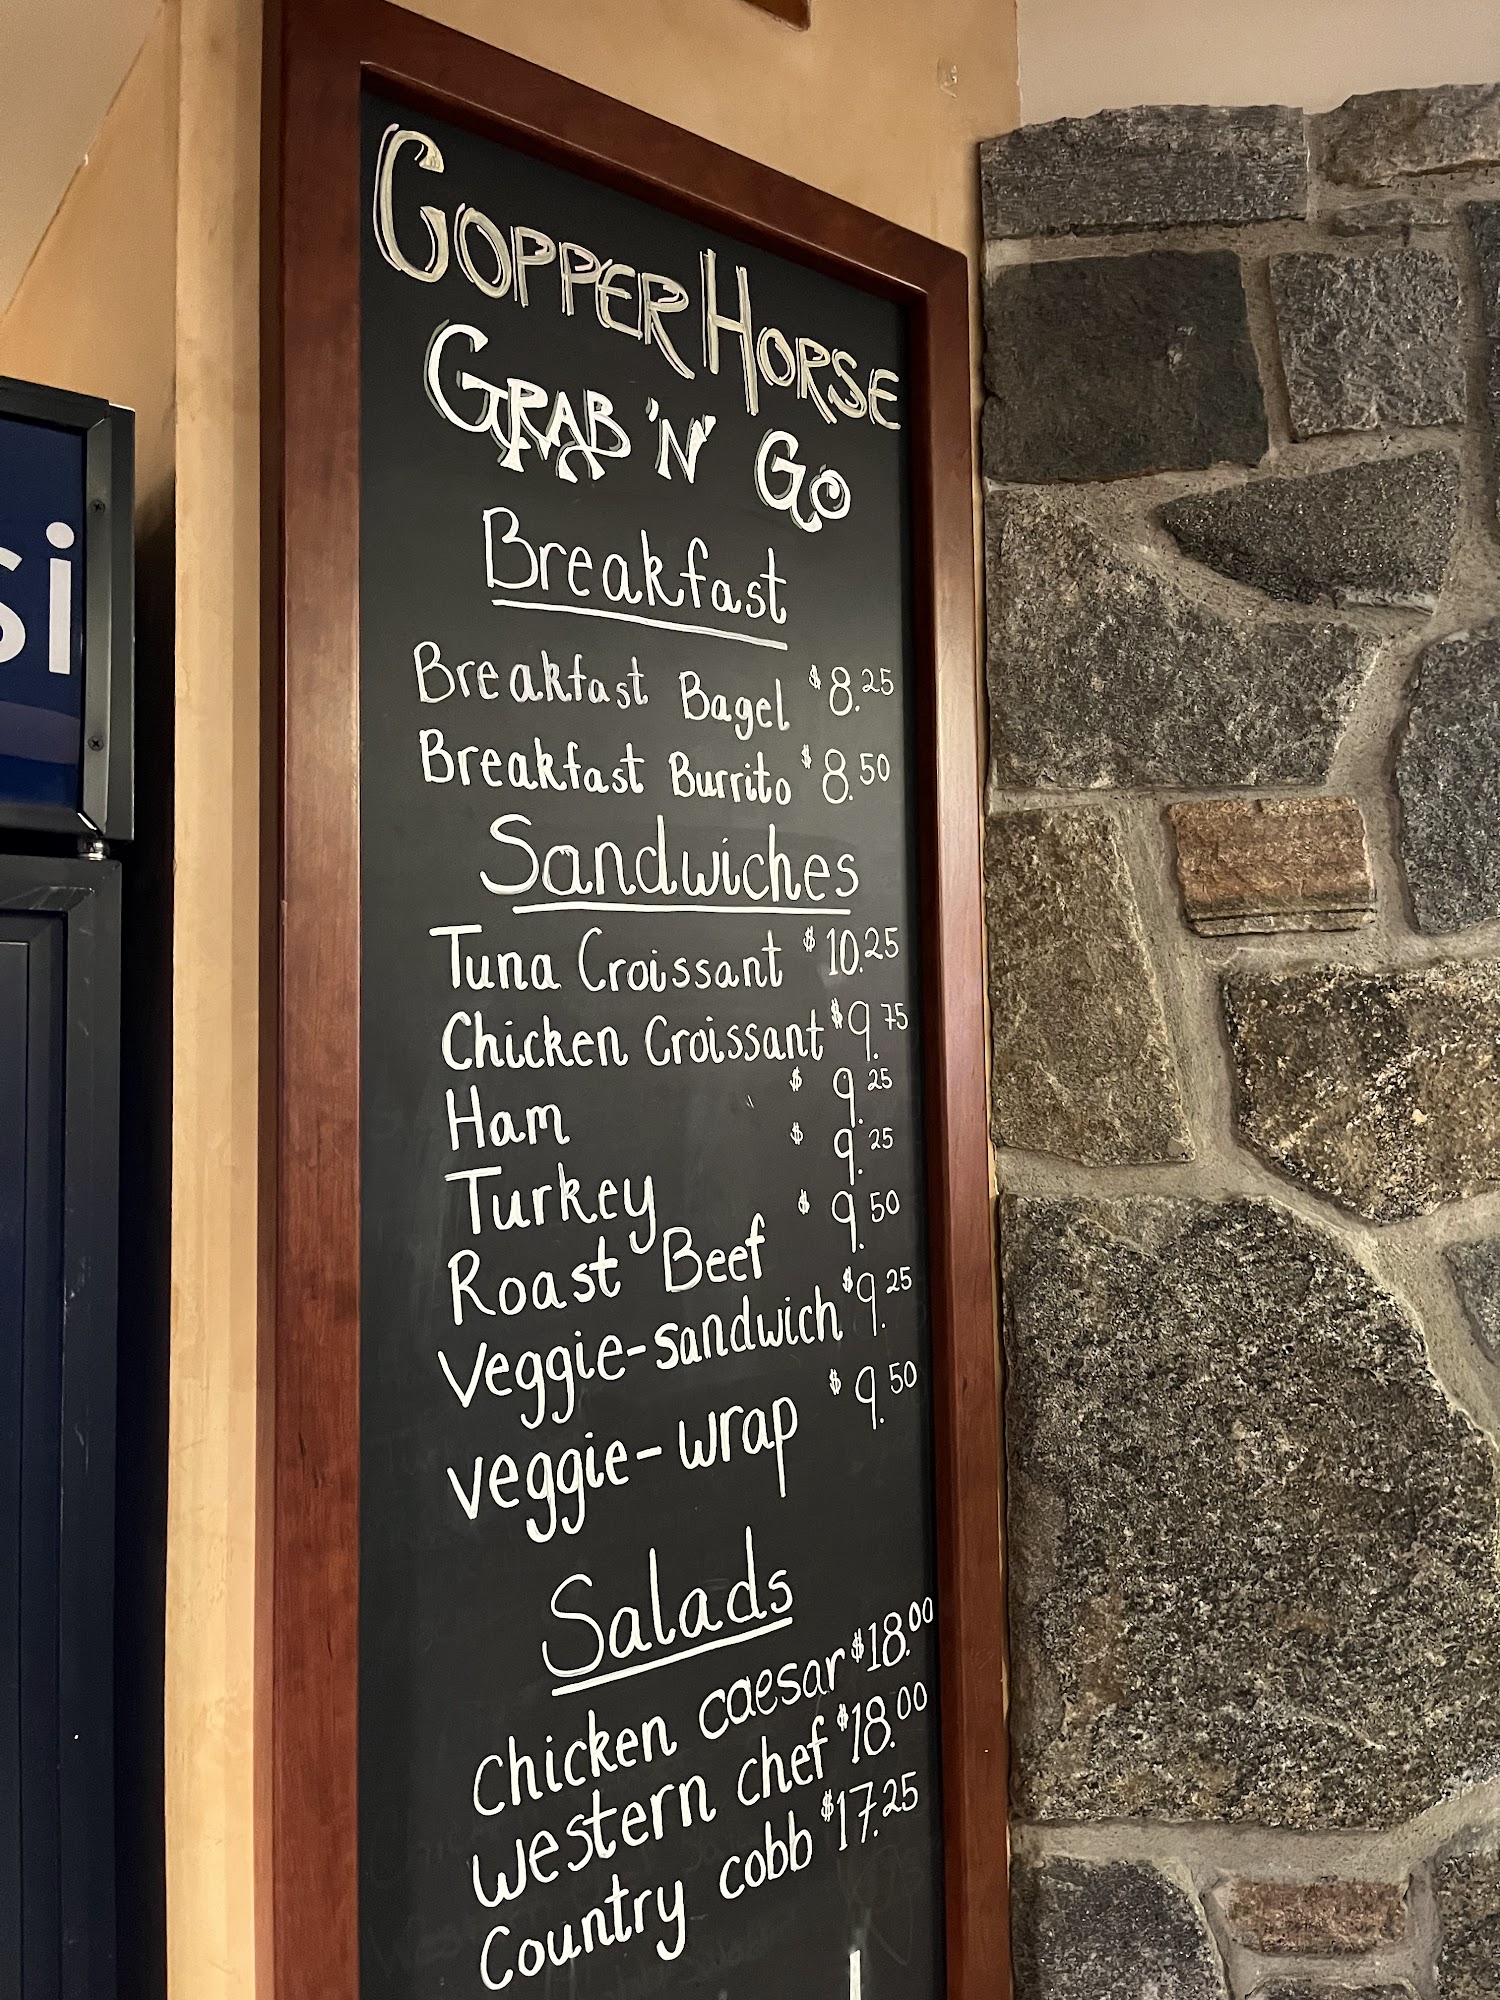 COPPER HORSE
GRAB 'N' GO
Breakfast
Breakfast Bagel $8.25
Breakfast Burrito $8.50
Sandwiches
Tuna Croissant $10.25
Chicken Croissant $9.75
Ham $9.25
Turkey $9.25
Roast Beef $9.50
Veggie-sandwich $9.25
veggie-wrap $9.50
Salads
Chicken caesar $18.00
Western chef $18.00
Country cobb $17.25
si